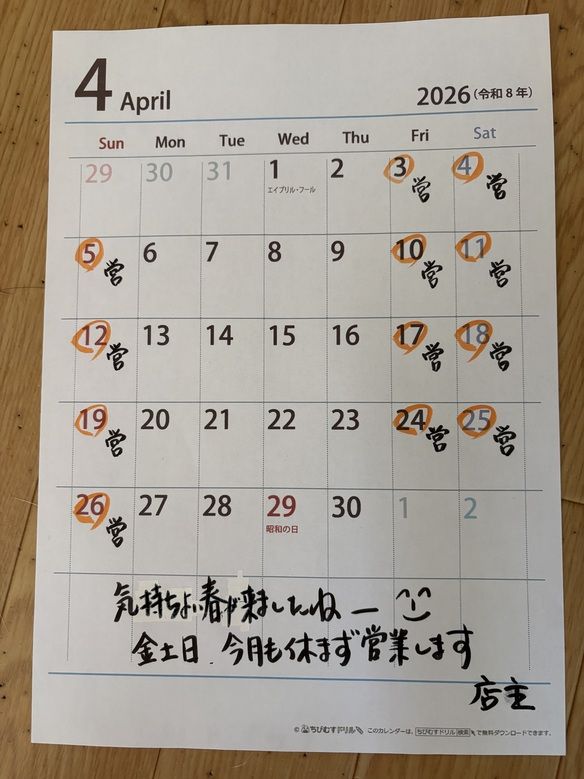 4 April
2026(令和8年)
Sun Mon Tue Wed Thu Fri Sat
29 30 31 1 2 3 4
エイプリル・フール
営 営
5 6 7 8 9 10 11
営 営 営
12 13 14 15 16 17 18
営 営 営
19 20 21 22 23 24 25
営 営 営
26 27 28 29 30 1 2
昭和の日
営
気持ちよい春が来ましたね ー ^_^
金土日、今月も休まず営業します
店主
© ちびむすドリル このカレンダーは、ちびむすドリル 検索 で無料ダウンロードできます。